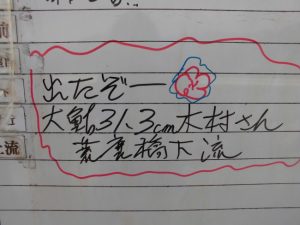 前
出たぞー
大鮎31.3cm木村さん
橋下流
流